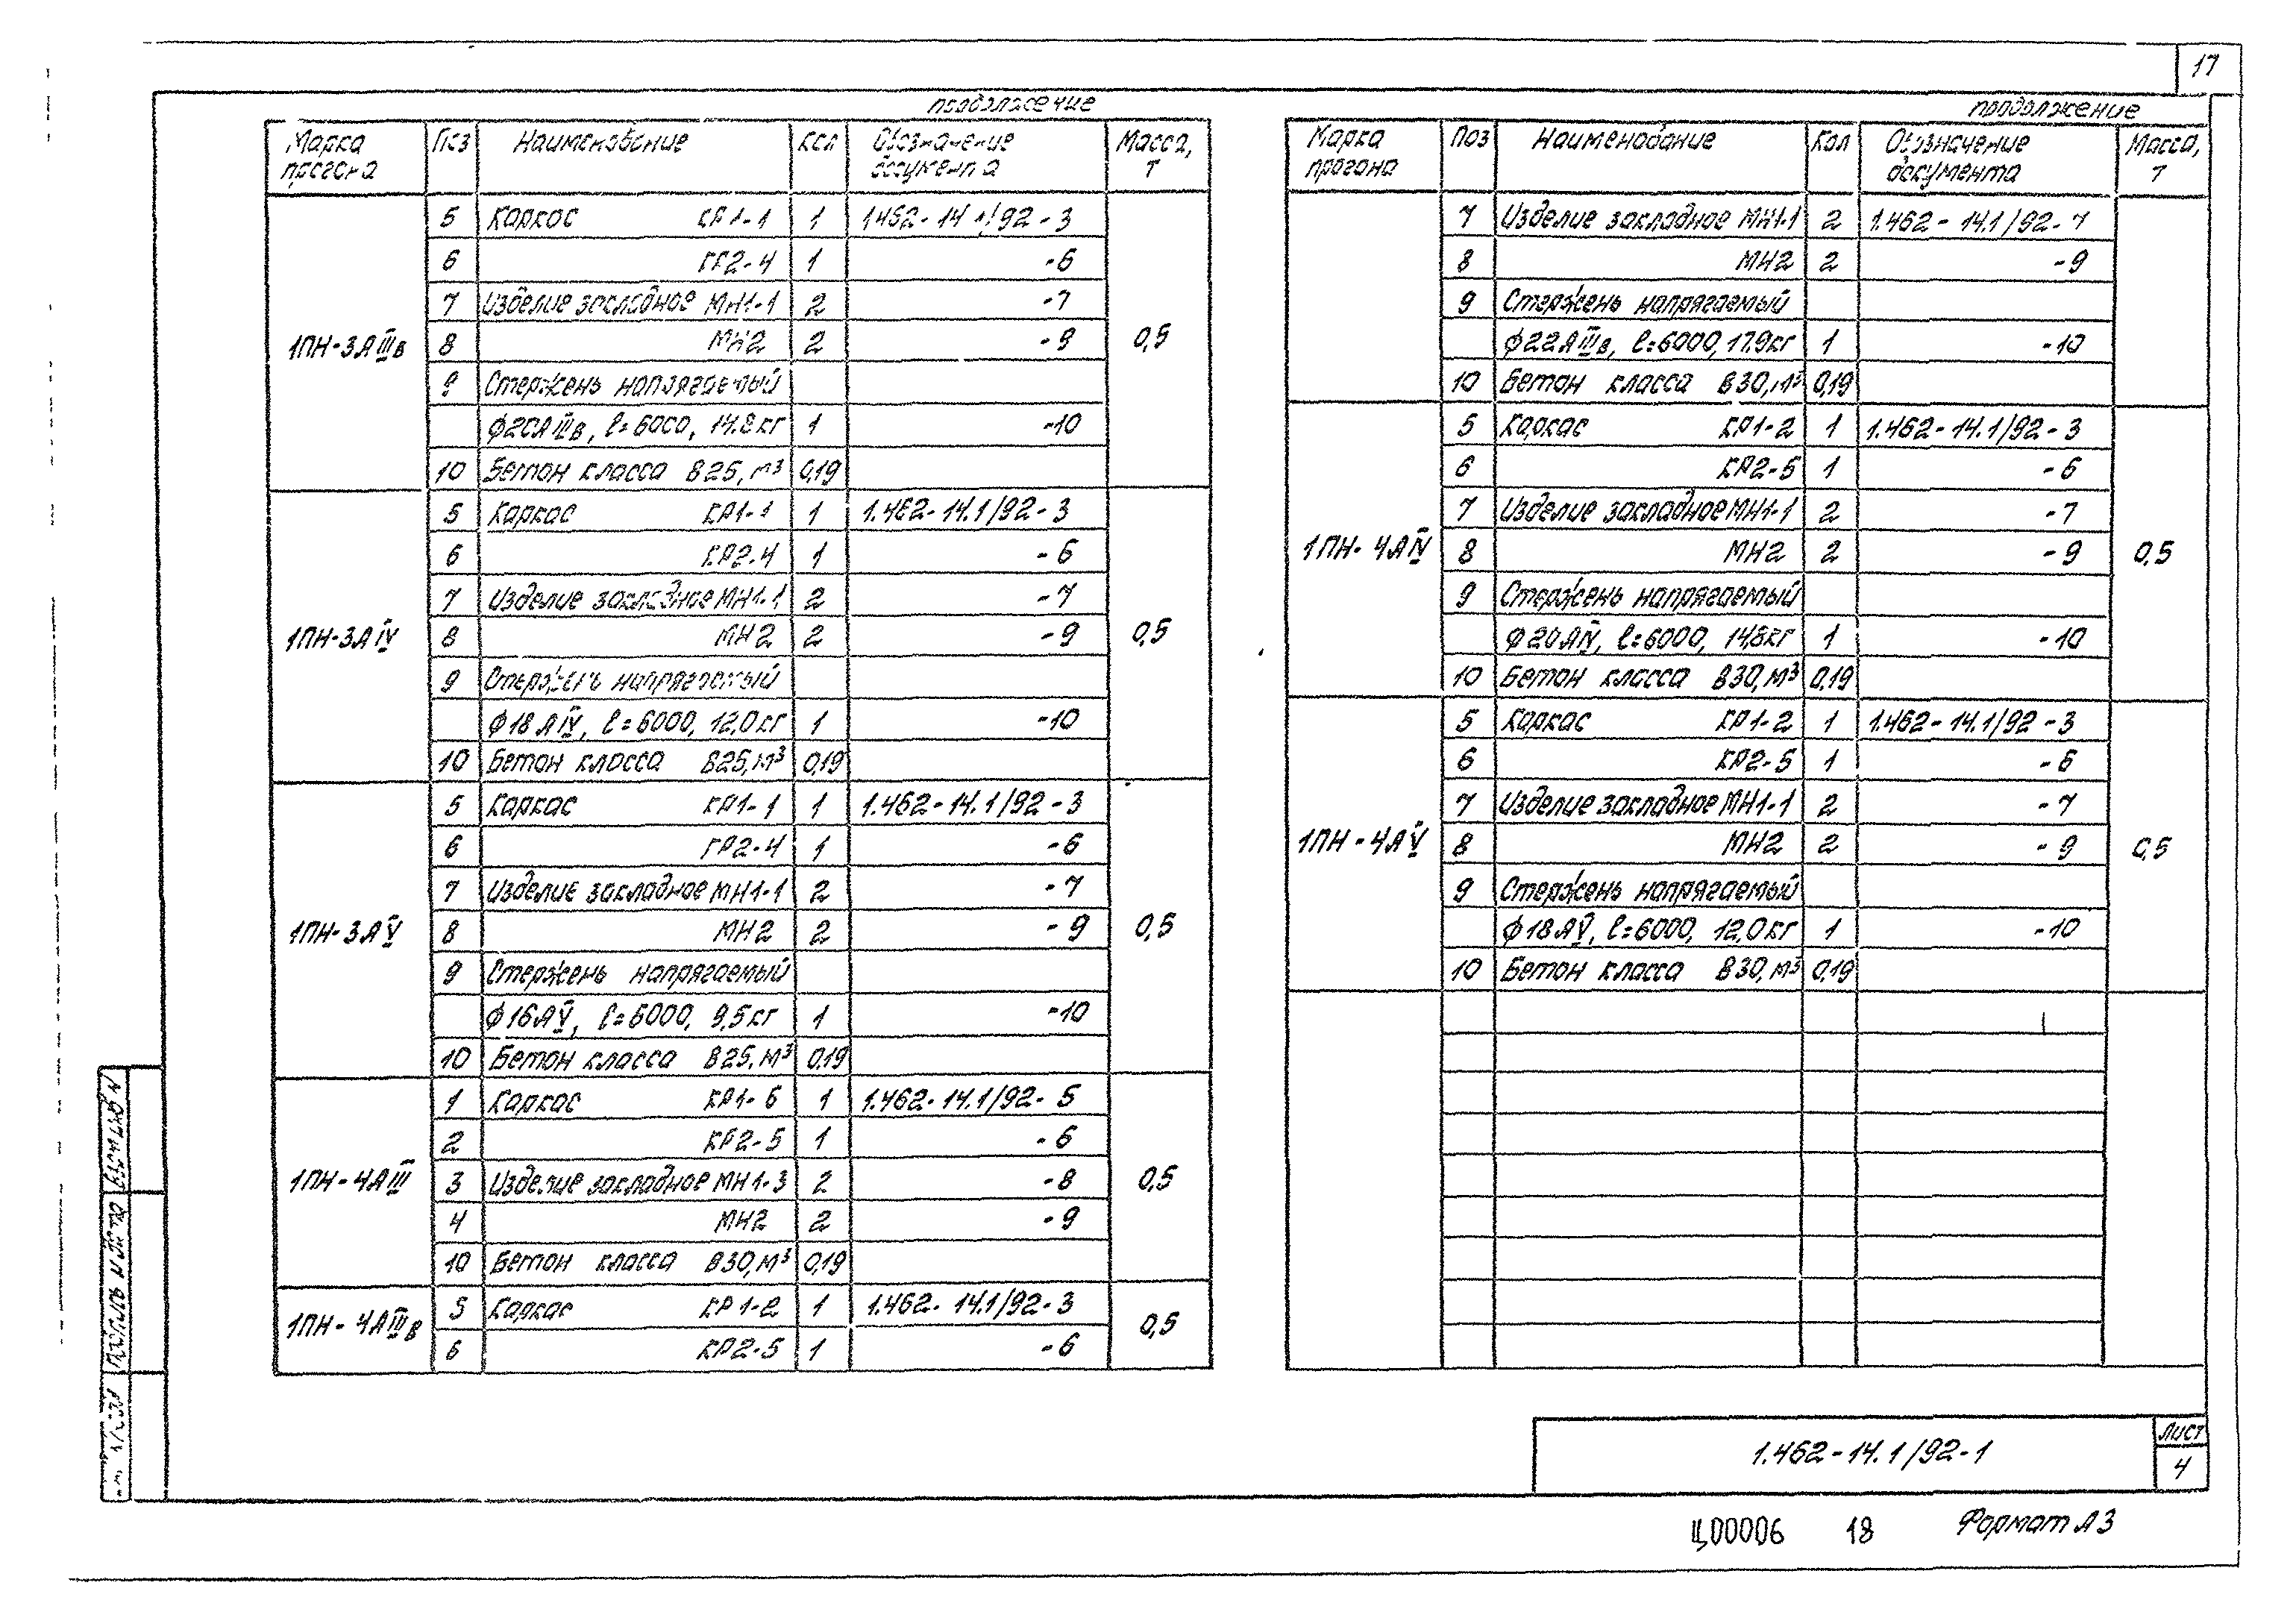 17
продолжение
Марка прогона Поз Наименование Кол Обозначение документа Масса, т
1ПН-3АIIIв 0,5
5 Каркас КР1-1 1 1.462-14.1/92-3
6 КР2-4 1 -6
7 Изделие закладное МН1-1 2 -7
8 МН2 2 -9
9 Стержень напрягаемый
ф20АIIIв, l=6000, 14.8кг 1 -10
10 Бетон класса В25, м³ 0,19
1ПН-3АIV 0,5
5 Каркас КР1-1 1 1.462-14.1/92-3
6 КР2-4 1 -6
7 Изделие закладное МН1-1 2 -7
8 МН2 2 -9
9 Стержень напрягаемый
ф18АIV, l=6000, 12,0кг 1 -10
10 Бетон класса В25, м³ 0,19
1ПН-3АV 0,5
5 Каркас КР1-1 1 1.462-14.1/92-3
6 КР2-4 1 -6
7 Изделие закладное МН1-1 2 -7
8 МН2 2 -9
9 Стержень напрягаемый
ф16АV, l=6000, 9,5кг 1 -10
10 Бетон класса В25, м³ 0,19
1ПН-4АIII 0,5
1 Каркас КР1-6 1 1.462-14.1/92-5
2 КР2-5 1 -6
3 Изделие закладное МН1-3 2 -8
4 МН2 2 -9
10 Бетон класса В30, м³ 0,19
1ПН-4АIIIв 0,5
5 Каркас КР1-2 1 1.462-14.1/92-3
6 КР2-5 1 -6
продолжение
Марка прогона Поз Наименование Кол Обозначение документа Масса, т
7 Изделие закладное МН1-1 2 1.462-14.1/92-7
8 МН2 2 -9
9 Стержень напрягаемый
ф22АIIIв, l=6000, 17.9кг 1 -10
10 Бетон класса В30, м³ 0,19
1ПН-4АIV 0,5
5 Каркас КР1-2 1 1.462-14.1/92-3
6 КР2-5 1 -6
7 Изделие закладное МН1-1 2 -7
8 МН2 2 -9
9 Стержень напрягаемый
ф20АIV, l=6000, 14,8кг 1 -10
10 Бетон класса В30, м³ 0,19
1ПН-4АV 0,5
5 Каркас КР1-2 1 1.462-14.1/92-3
6 КР2-5 1 -6
7 Изделие закладное МН1-1 2 -7
8 МН2 2 -9
9 Стержень напрягаемый
ф18АV, l=6000, 12,0кг 1 -10
10 Бетон класса В30, м³ 0,19
1.462-14.1/92-1
Лист
4
Ц00006 18 Формат А3